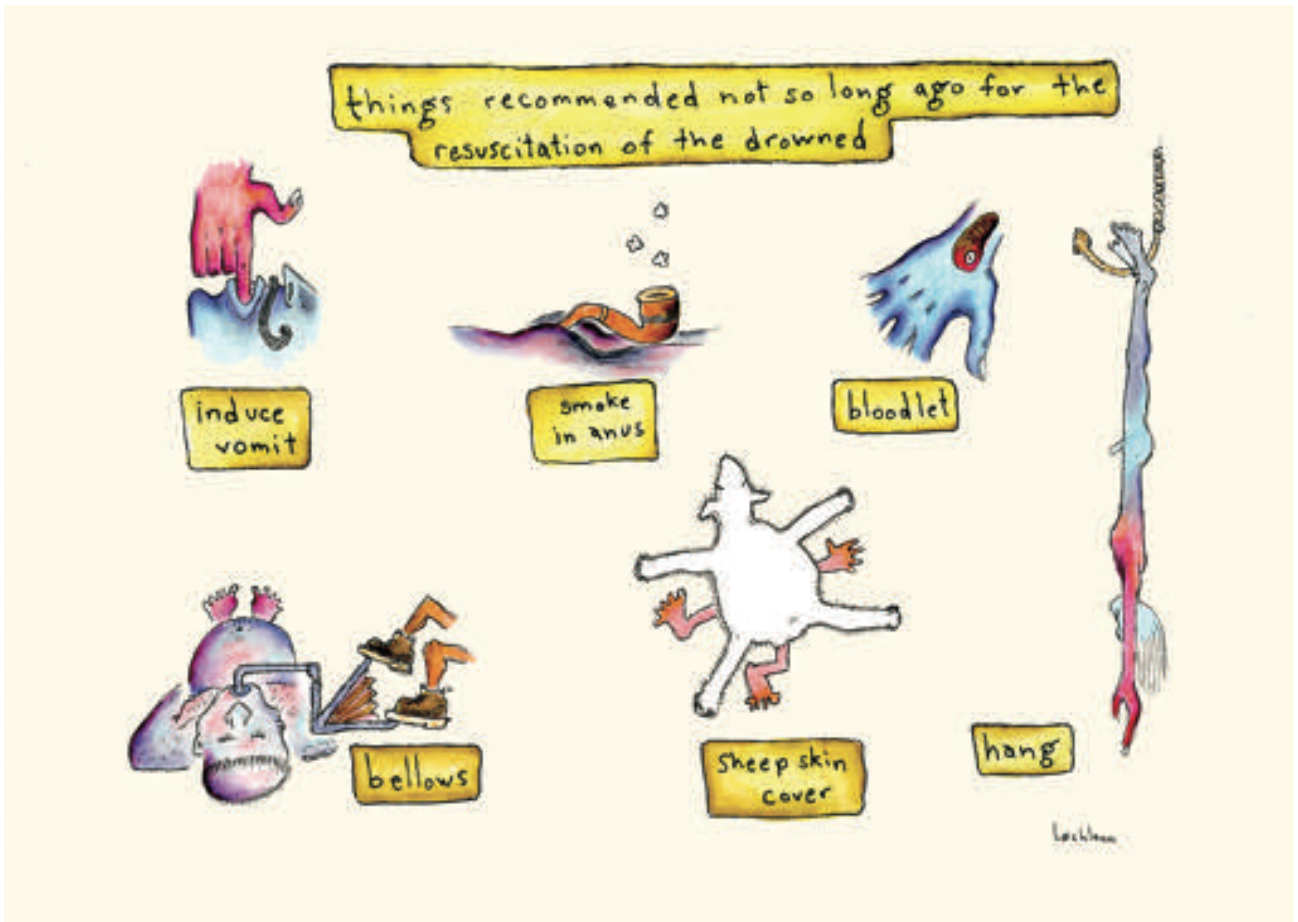 things recommended not so long ago for the
resuscitation of the drowned
induce
vomit
smoke
in anus
bloodlet
bellows
sheep skin
cover
hang